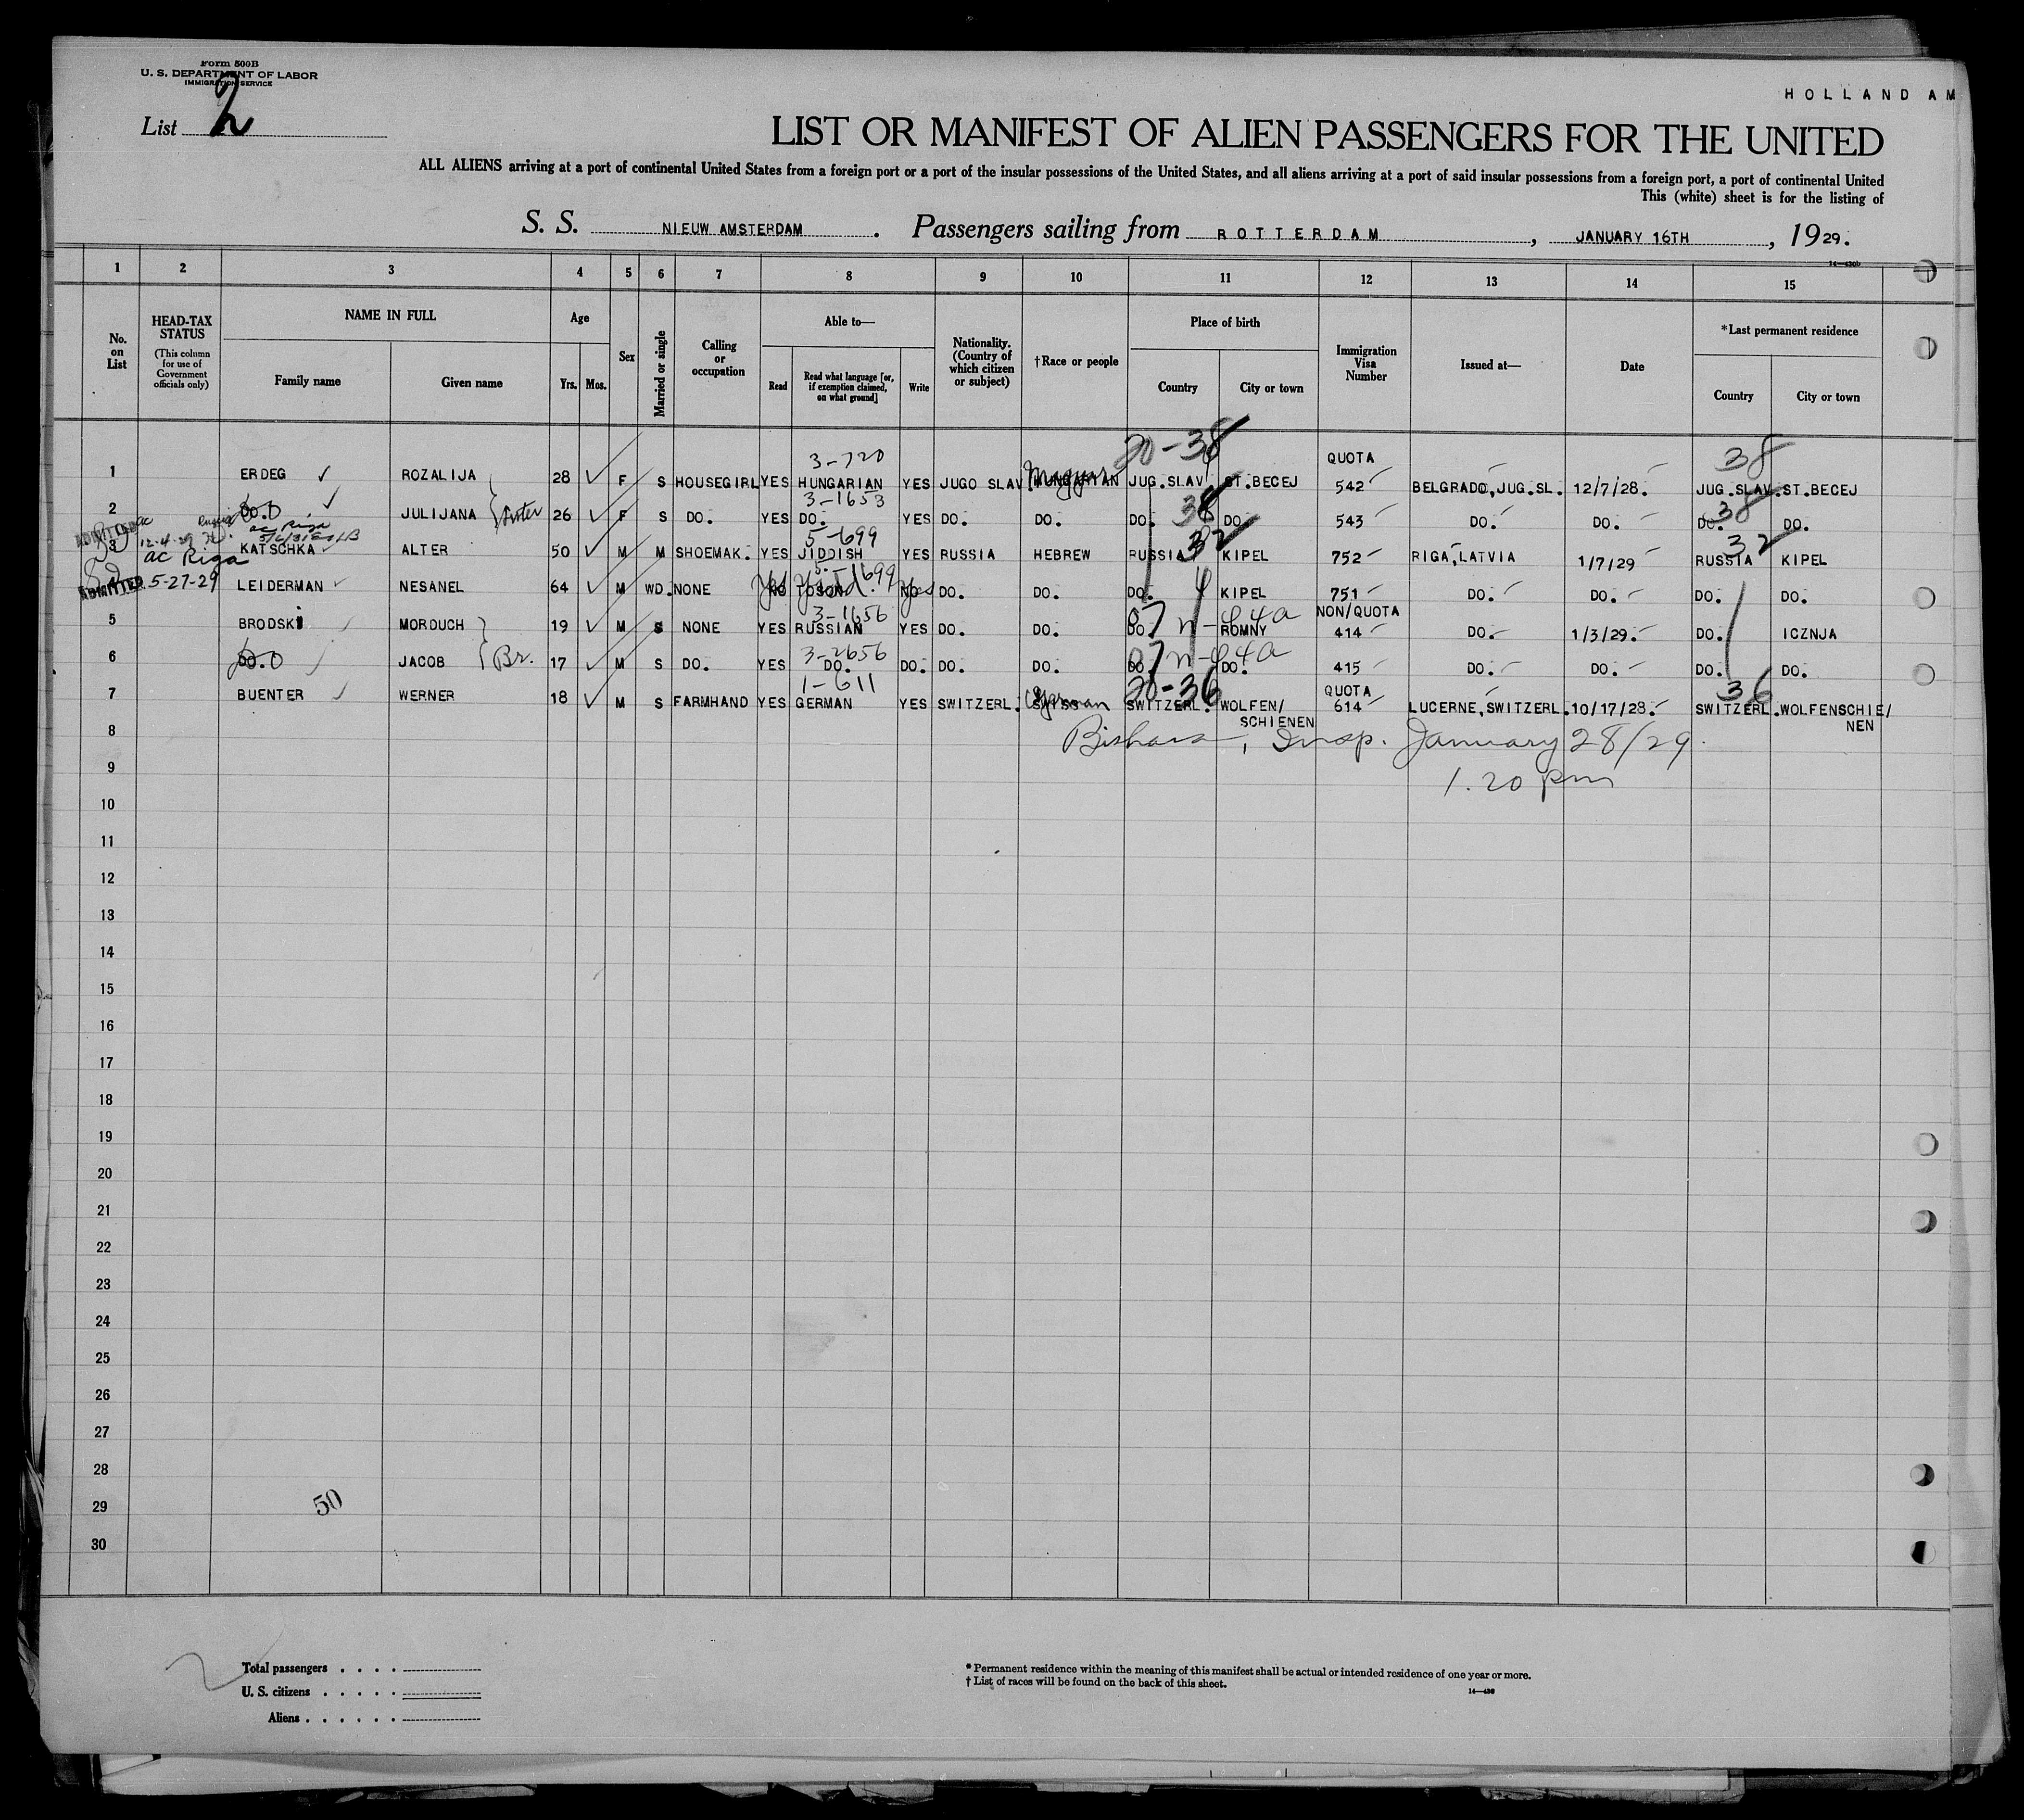 Form 500B
U. S. DEPARTMENT OF LABOR
IMMIGRATION SERVICE
HOLLAND AM
List 2
LIST OR MANIFEST OF ALIEN PASSENGERS FOR THE UNITED
ALL ALIENS arriving at a port of continental United States from a foreign port or a port of the insular possessions of the United States, and all aliens arriving at a port of said insular possessions from a foreign port, a port of continental United
This (white) sheet is for the listing of
S. S. NIEUW AMSTERDAM. Passengers sailing from ROTTERDAM, JANUARY 16TH, 1929.
14—430b
1 2 3 4 5 6 7 8 9 10 11 12 13 14 15
No. on List
HEAD-TAX STATUS
(This column for use of Government officials only)
NAME IN FULL
Family name Given name
Age
Yrs. Mos.
Sex
Married or single
Calling or occupation
Able to—
Read Read what language [or, if exemption claimed, on what ground] Write
Nationality. (Country of which citizen or subject)
†Race or people
Place of birth
Country City or town
Immigration Visa Number
Issued at—
Date
*Last permanent residence
Country City or town
3-720 20-38 QUOTA 38
1 ERDEG ✓ ROZALIJA 28 ✓ F S HOUSEGIRL YES HUNGARIAN YES JUGO SLAV. HUNGARYAN Magyar JUG.SLAV ST.BECEJ 542 BELGRADO,JUG.SL. 12/7/28. JUG.SLAV. ST.BECEJ
3-1653 38 38
2 DO. ✓ JULIJANA Sister 26 ✓ F S DO. YES DO. YES DO. DO. DO. DO. 543 DO. DO. DO. DO.
ADMITTED ac Riga 12-4-29 5/6/31
5-699 32 32
3 KATSCHKA ✓ ALTER 50 ✓ M M SHOEMAK. YES JIDDISH YES RUSSIA HEBREW RUSSIA KIPEL 752 RIGA,LATVIA 1/7/29 RUSSIA KIPEL
ac Riga
5-1699
4 ADMITTED 5-27-29 LEIDERMAN ✓ NESANEL 64 ✓ M WD. NONE NO Yes TOSON Yidd. NO Yes DO. DO. DO. KIPEL 751 DO. DO. DO. DO.
3-1656 07 n-44a NON/QUOTA
5 BRODSKI MORDUCH 19 ✓ M S NONE YES RUSSIAN YES DO. DO. DO. ROMNY 414 DO. 1/3/29. DO. ICZNJA
3-2656 07 n-44a
6 DO. JACOB Br. 17 ✓ M S DO. YES DO. DO. DO. DO. DO. DO. 415 DO. DO. DO. DO.
1-611 20-36 QUOTA 36
7 BUENTER ✓ WERNER 18 ✓ M S FARMHAND YES GERMAN YES SWITZERL. SWISS German SWITZERL. WOLFEN/ 614 LUCERNE,SWITZERL. 10/17/28. SWITZERL. WOLFENSCHIE/
SCHIENEN NEN
8 Insp. January 28/29
9 1.20 pm
10
11
12
13
14
15
16
17
18
19
20
21
22
23
24
25
26
27
28
29 50
30
Total passengers . . . .
U. S. citizens . . . . .
Aliens . . . . . .
* Permanent residence within the meaning of this manifest shall be actual or intended residence of one year or more.
† List of races will be found on the back of this sheet.
14—430